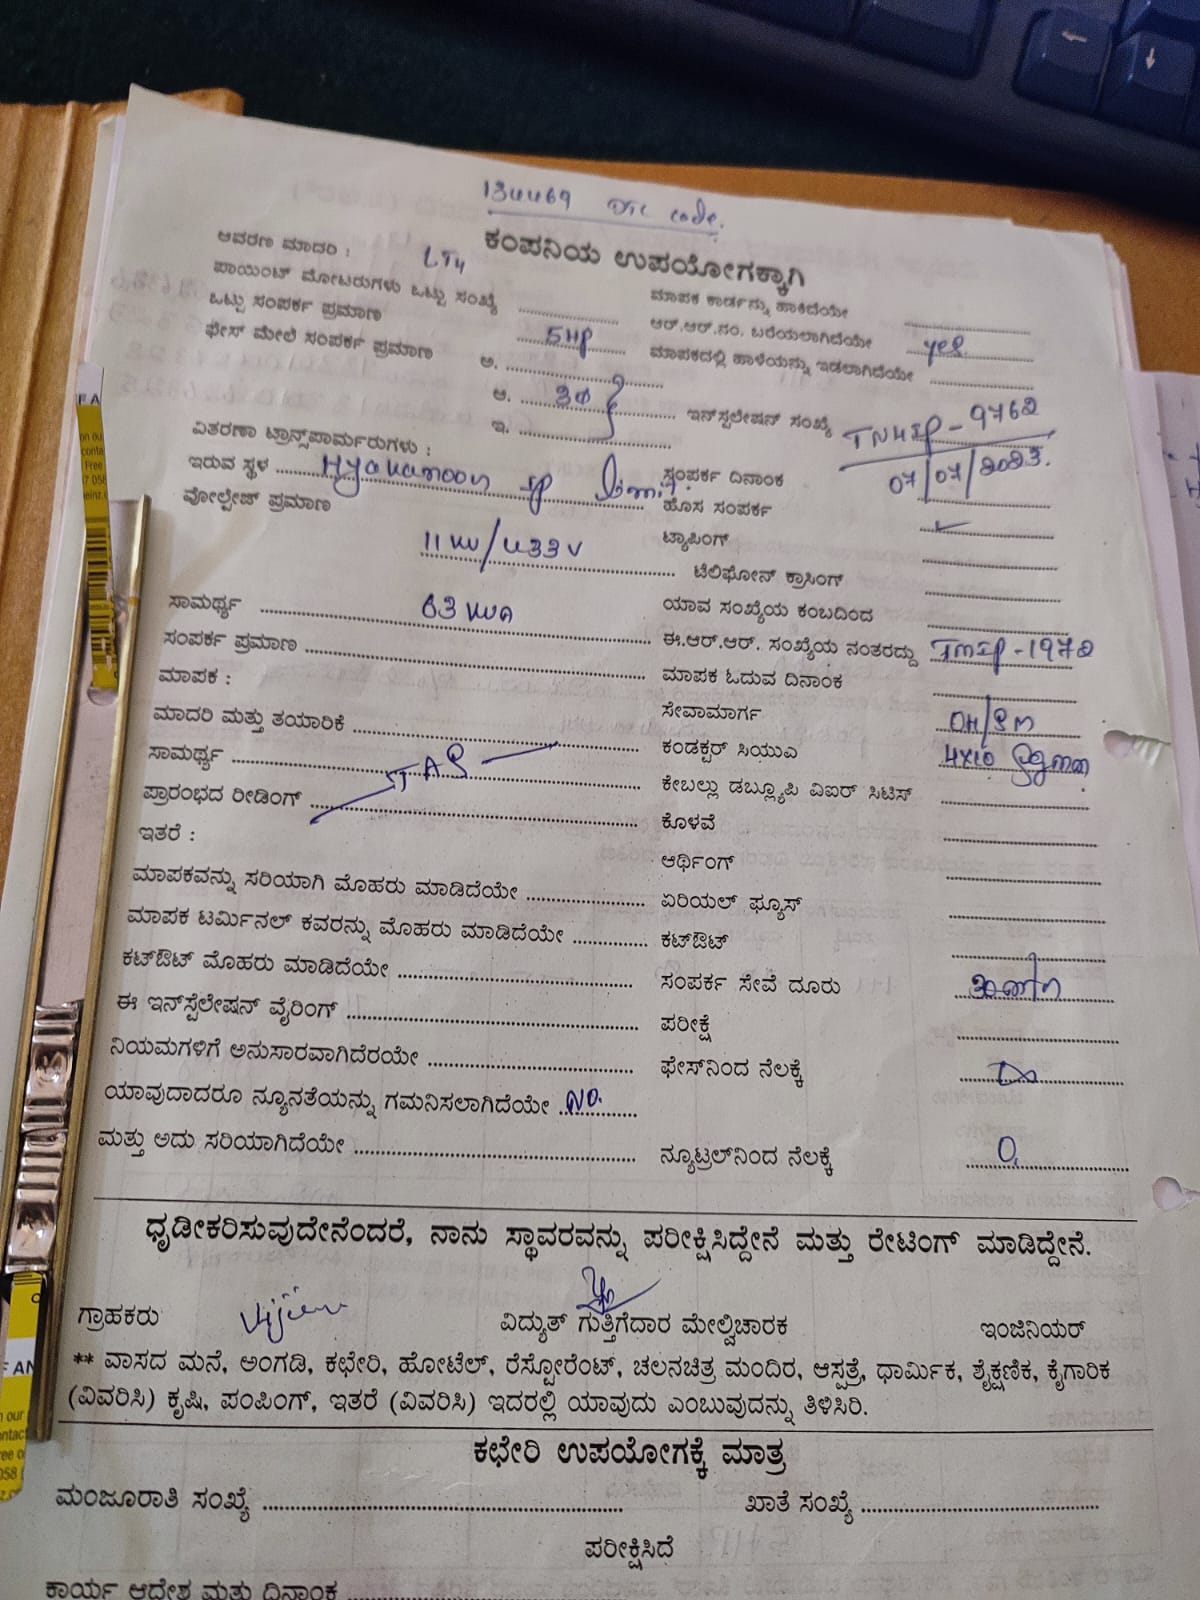 134469 DTC code.
ಕಂಪನಿಯ ಉಪಯೋಗಕ್ಕಾಗಿ
ಆವರಣ ಮಾದರಿ : LT4
ಪಾಯಿಂಟ್ ಮೋಟರುಗಳು ಒಟ್ಟು ಸಂಖ್ಯೆ
ಒಟ್ಟು ಸಂಪರ್ಕ ಪ್ರಮಾಣ 5HP
ಫೇಸ್ ಮೇಲೆ ಸಂಪರ್ಕ ಪ್ರಮಾಣ ಅ.
ಆ. 3Φ
ಇ.
ವಿತರಣಾ ಟ್ರಾನ್ಸ್‌ಪಾರ್ಮರುಗಳು :
ಇರುವ ಸ್ಥಳ IP limit.
ವೋಲ್ಟೇಜ್ ಪ್ರಮಾಣ
11 KV/433V
ಸಾಮರ್ಥ್ಯ 63 KVA
ಸಂಪರ್ಕ ಪ್ರಮಾಣ
ಮಾಪಕ :
ಮಾದರಿ ಮತ್ತು ತಯಾರಿಕೆ
ಸಾಮರ್ಥ್ಯ
ಪ್ರಾರಂಭದ ರೀಡಿಂಗ್
ಇತರೆ :
ಮಾಪಕವನ್ನು ಸರಿಯಾಗಿ ಮೊಹರು ಮಾಡಿದೆಯೇ
ಮಾಪಕ ಟರ್ಮಿನಲ್ ಕವರನ್ನು ಮೊಹರು ಮಾಡಿದೆಯೇ
ಕಟ್‌ಔಟ್ ಮೊಹರು ಮಾಡಿದೆಯೇ
ಈ ಇನ್‌ಸ್ಪೆಲೇಷನ್ ವೈರಿಂಗ್
ನಿಯಮಗಳಿಗೆ ಅನುಸಾರವಾಗಿದೆರಯೇ
ಯಾವುದಾದರೂ ನ್ಯೂನತೆಯನ್ನು ಗಮನಿಸಲಾಗಿದೆಯೇ NO.
ಮತ್ತು ಅದು ಸರಿಯಾಗಿದೆಯೇ
ಮಾಪಕ ಕಾರ್ಡನ್ನು ಹಾಕಿದೆಯೇ
ಆರ್.ಆರ್.ನಂ. ಬರೆಯಲಾಗಿದೆಯೇ yes
ಮಾಪಕದಲ್ಲಿ ಹಾಳೆಯನ್ನು ಇಡಲಾಗಿದೆಯೇ
ಇನ್‌ಸ್ಟಲೇಷನ್ ಸಂಖ್ಯೆ TN4IP-9762
ಸಂಪರ್ಕ ದಿನಾಂಕ 07/07/2023.
ಹೊಸ ಸಂಪರ್ಕ
ಟ್ಯಾಪಿಂಗ್
ಟೆಲಿಫೋನ್ ಕ್ರಾಸಿಂಗ್
ಯಾವ ಸಂಖ್ಯೆಯ ಕಂಬದಿಂದ
ಈ.ಆರ್.ಆರ್. ಸಂಖ್ಯೆಯ ನಂತರದ್ದು TMIP-1972
ಮಾಪಕ ಓದುವ ದಿನಾಂಕ
ಸೇವಾಮಾರ್ಗ OH/SM
ಕಂಡಕ್ಟರ್ ಸಿಯುಎ 4X10
ಕೇಬಲ್ಲು ಡಬ್ಲ್ಯೂಪಿ ವಿಐರ್ ಸಿಟಿಸ್
ಕೊಳವೆ
ಆರ್ಥಿಂಗ್
ಏರಿಯಲ್ ಫ್ಯೂಸ್
ಕಟ್‌ಔಟ್
ಸಂಪರ್ಕ ಸೇವೆ ದೂರು
ಪರೀಕ್ಷೆ
ಫೇಸ್‌ನಿಂದ ನೆಲಕ್ಕೆ
ನ್ಯೂಟ್ರಲ್‌ನಿಂದ ನೆಲಕ್ಕೆ 0.
ಧೃಡೀಕರಿಸುವುದೇನೆಂದರೆ, ನಾನು ಸ್ಥಾವರವನ್ನು ಪರೀಕ್ಷಿಸಿದ್ದೇನೆ ಮತ್ತು ರೇಟಿಂಗ್ ಮಾಡಿದ್ದೇನೆ.
ಗ್ರಾಹಕರು ವಿದ್ಯುತ್ ಗುತ್ತಿಗೆದಾರ ಮೇಲ್ವಿಚಾರಕ ಇಂಜಿನಿಯರ್
** ವಾಸದ ಮನೆ, ಅಂಗಡಿ, ಕಛೇರಿ, ಹೋಟೆಲ್, ರೆಸ್ಟೋರೆಂಟ್, ಚಲನಚಿತ್ರ ಮಂದಿರ, ಆಸ್ಪತ್ರೆ, ಧಾರ್ಮಿಕ, ಶೈಕ್ಷಣಿಕ, ಕೈಗಾರಿಕ
(ವಿವರಿಸಿ) ಕೃಷಿ, ಪಂಪಿಂಗ್, ಇತರೆ (ವಿವರಿಸಿ) ಇದರಲ್ಲಿ ಯಾವುದು ಎಂಬುವುದನ್ನು ತಿಳಿಸಿರಿ.
ಕಛೇರಿ ಉಪಯೋಗಕ್ಕೆ ಮಾತ್ರ
ಮಂಜೂರಾತಿ ಸಂಖ್ಯೆ ಖಾತೆ ಸಂಖ್ಯೆ
ಪರೀಕ್ಷಿಸಿದೆ
ಕಾರ್ಯ ಆದೇಶ ಮತ್ತು ದಿನಾಂಕ